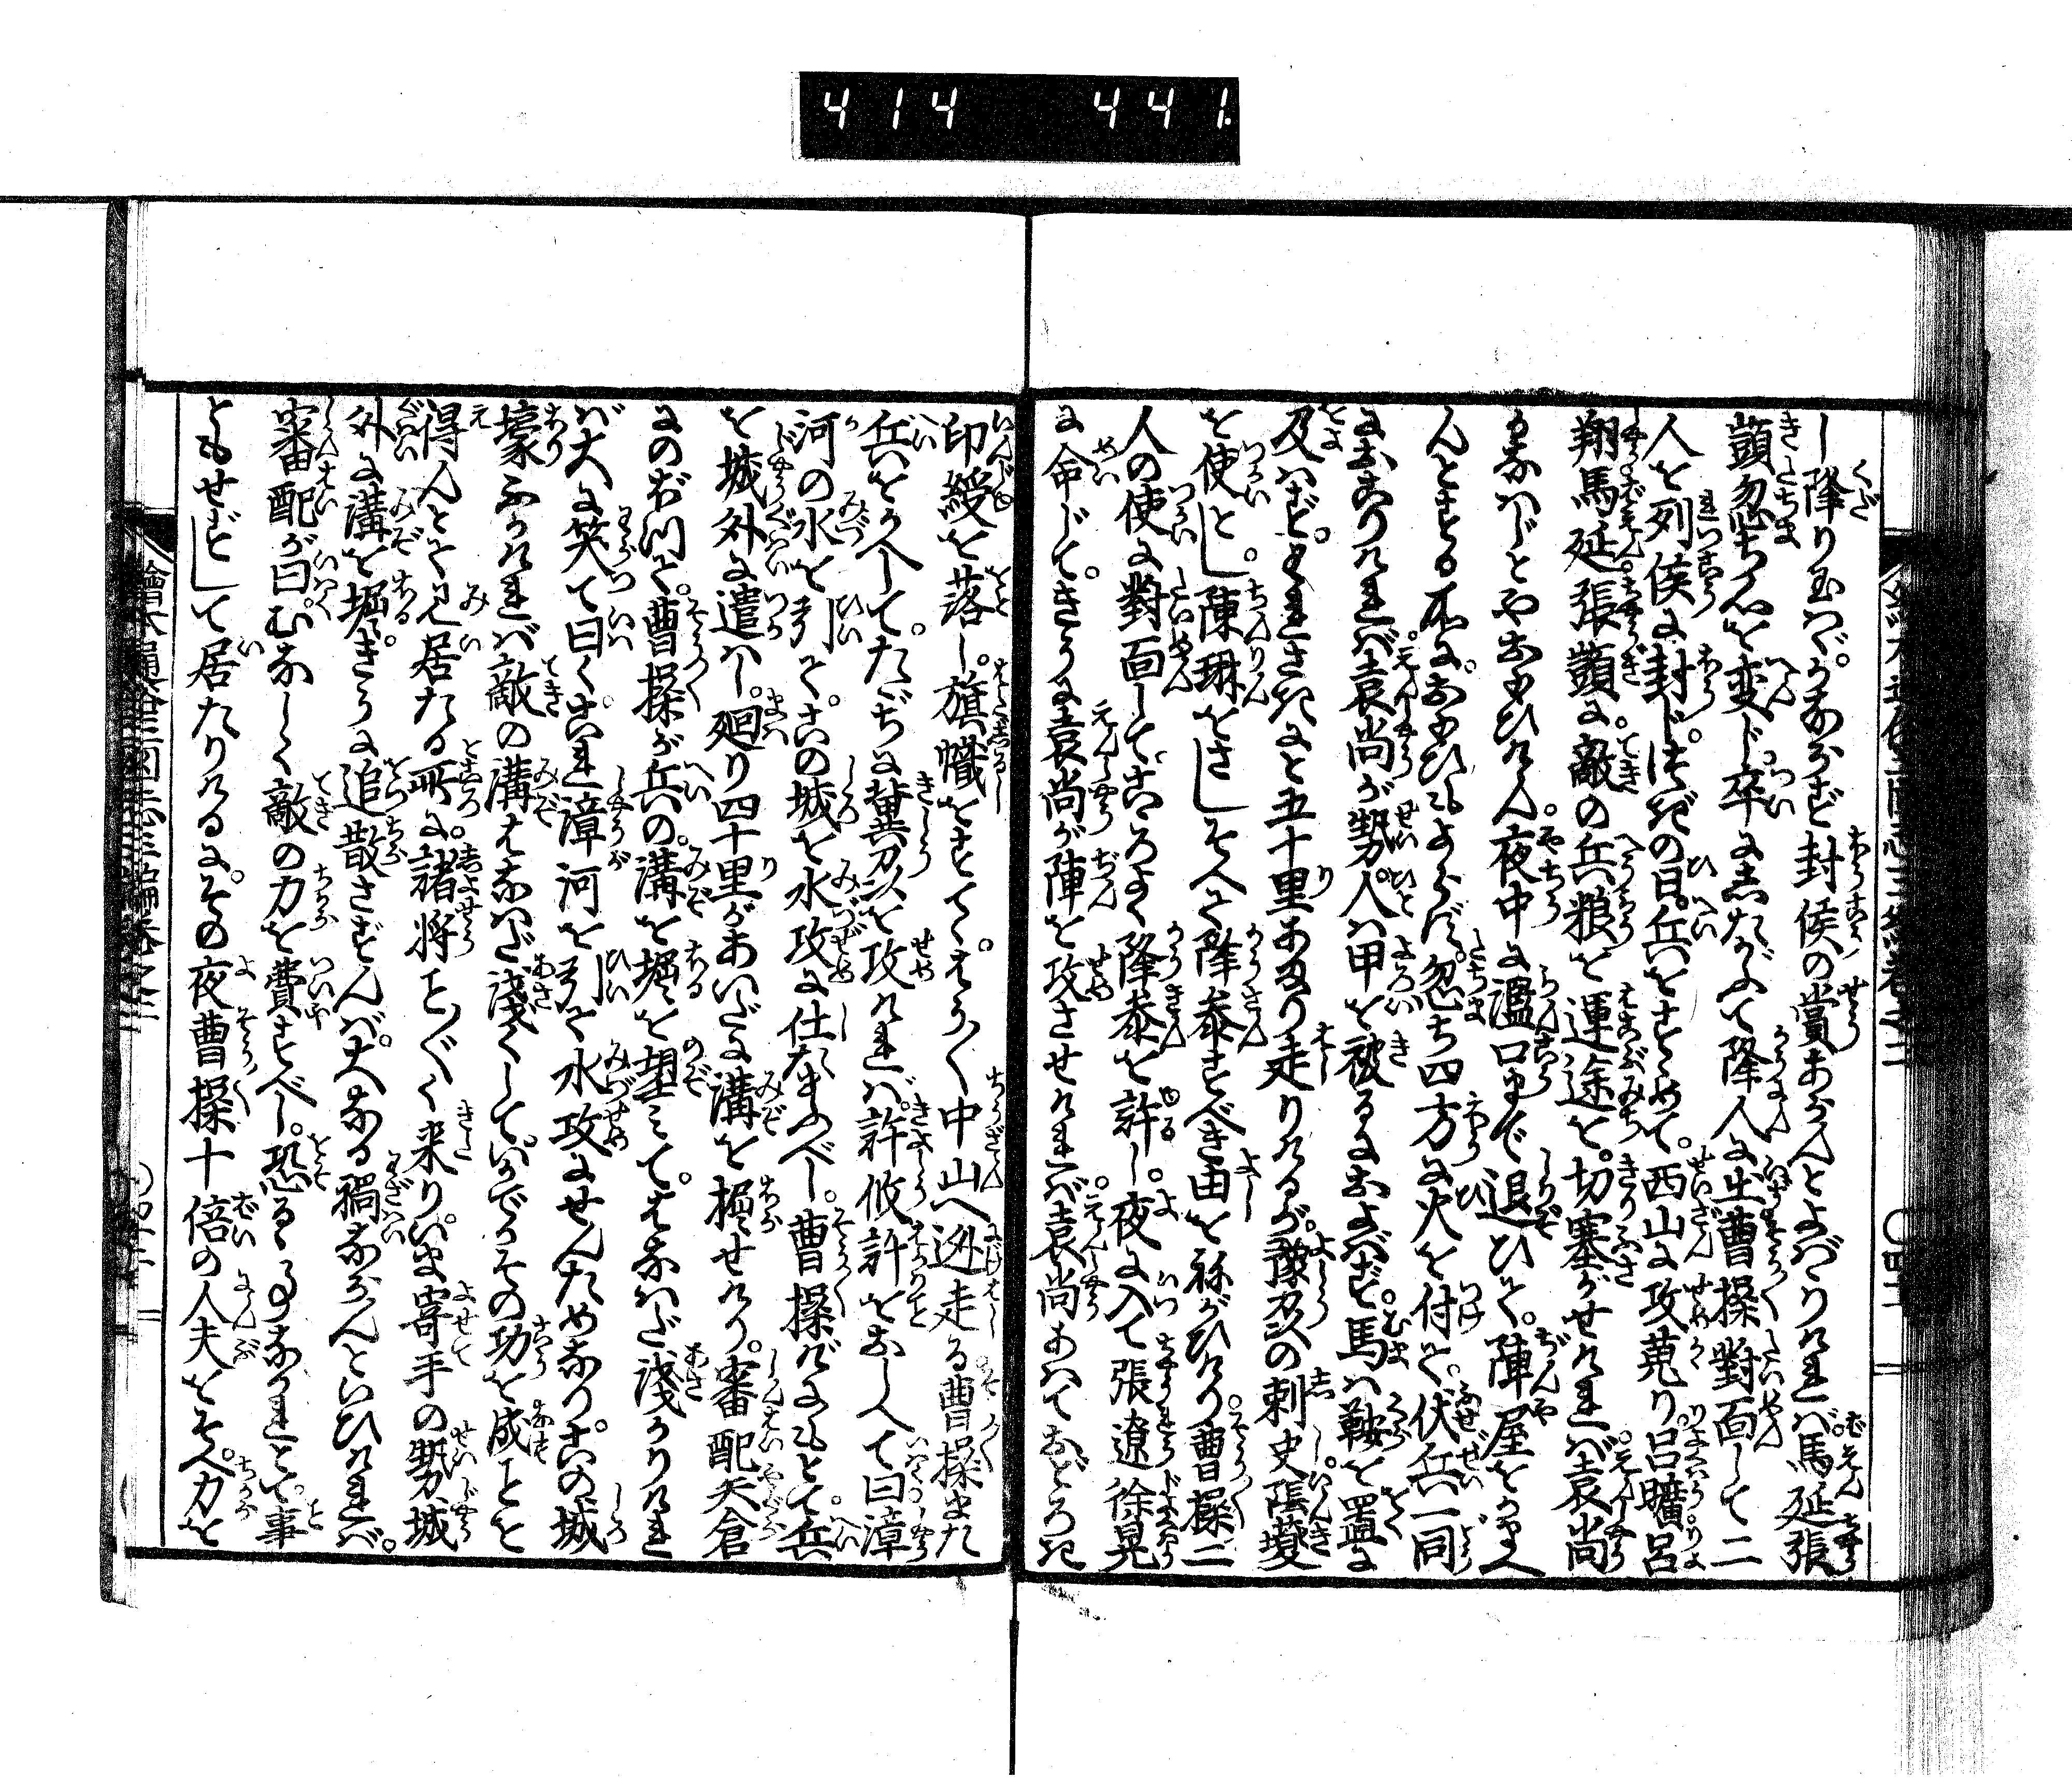 414 441.
し降り玉はゞかならず封侯の賞あらんとよばゝりければ馬延張
顗忽ち心を変じ卒に志たがふて降人に出曹操對面して二
人を列侯に封じ次の日兵をすゝめて西山に攻蒐り呂曠呂
翔馬延張顗に敵の兵粮を運途を切塞がせければ袁尚
かなはじとやおもひけん夜中に濫口まで退ひて陣屋をかまへ
んとする所におもひもよらず忽ち四方に火を付て伏兵一同
におこりければ袁尚が勢人は甲を被るにおよばず馬は鞍を置に
及はずくずれさけに五十里あまり走りけるが豫及の刺史陰夔
を使とし陳琳をさしそへて降参すべき由を称がひけり曹操二
人の使に對面してこゝろよく降参を許し夜に入て張遼徐晃
に命じてきうに袁尚が陣を攻させければ袁尚あはておどろき
印綬を落し旗幟をすてゝえう〳〵中山へ迯走る曹操また
兵をかへしてたゞちに冀刕を攻ければ許攸計をおしへて曰漳
河の水を引てこの城を水攻に仕たまふべし曹操げにもとて兵
を城外に遣はし廻り四十里があいだに溝を掘せけり審配矢倉
にのぼつて曹操が兵の溝を掘を望みてはなはだ浅かりけれ
ば大に笑て曰くこれ漳河を引て水攻にせんためなりこの城
壕ふかければ敵の溝はなはだ浅くしていかでかその功を成ことを
得んとて見居たる所に諸将こと〴〵く来りいま寄手の勢城
外に溝を堀きうに追散さずんば大なる禍ならんといひければ
審配が曰むなしく敵の力を費すべし恐るゝ事なかれとて事
ともせずして居たりけるにその夜曹操十倍の人夫をそへ力を
繪本通俗三國志三編巻之二